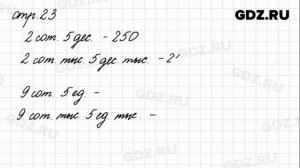 GDZ.RU
стр. 23
2 сот. 5 дес. - 250
2 сот. тыс. 5 дес. тыс. - 2
9 сот. 5 ед. -
9 сот. тыс. 5 ед. тыс. -